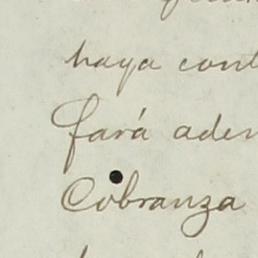 haya cont
fará adem
Cobranza